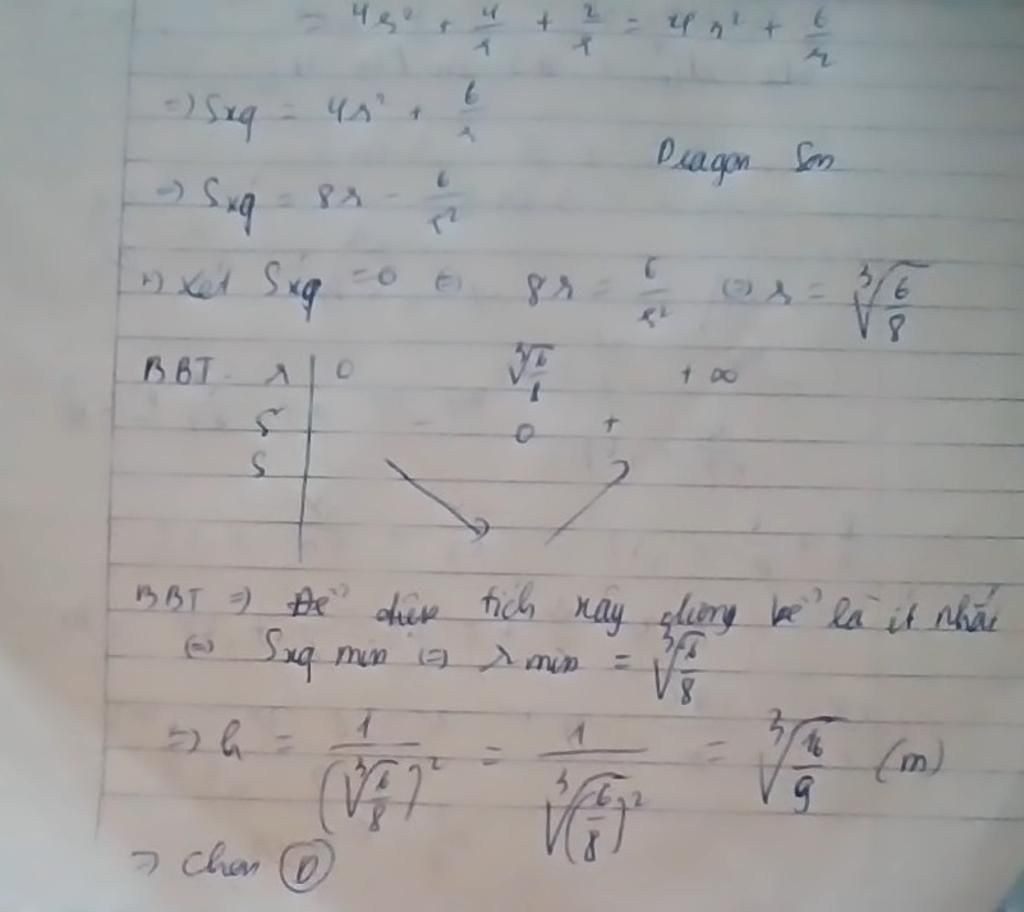 = 4r² + 4/r + 2/r = 4r² + 6/r
=> Sxq = 4r² + 6/r
Dragon Son
=> Sxq = 8r - 6/r²
=> Xét Sxq = 0 <=> 8r = 6/r² <=> r = ∛(6/8)
BBT r | 0 ∛(6/8) +∞
S' - 0 +
S
BBT => Để diện tích xây dựng bể là ít nhất
<=> Sxq min <=> r min = ∛(6/8)
=> h = 1/(∛(6/8))² = 1/∛(6/8)² = ∛(16/9) (m)
=> Chọn D